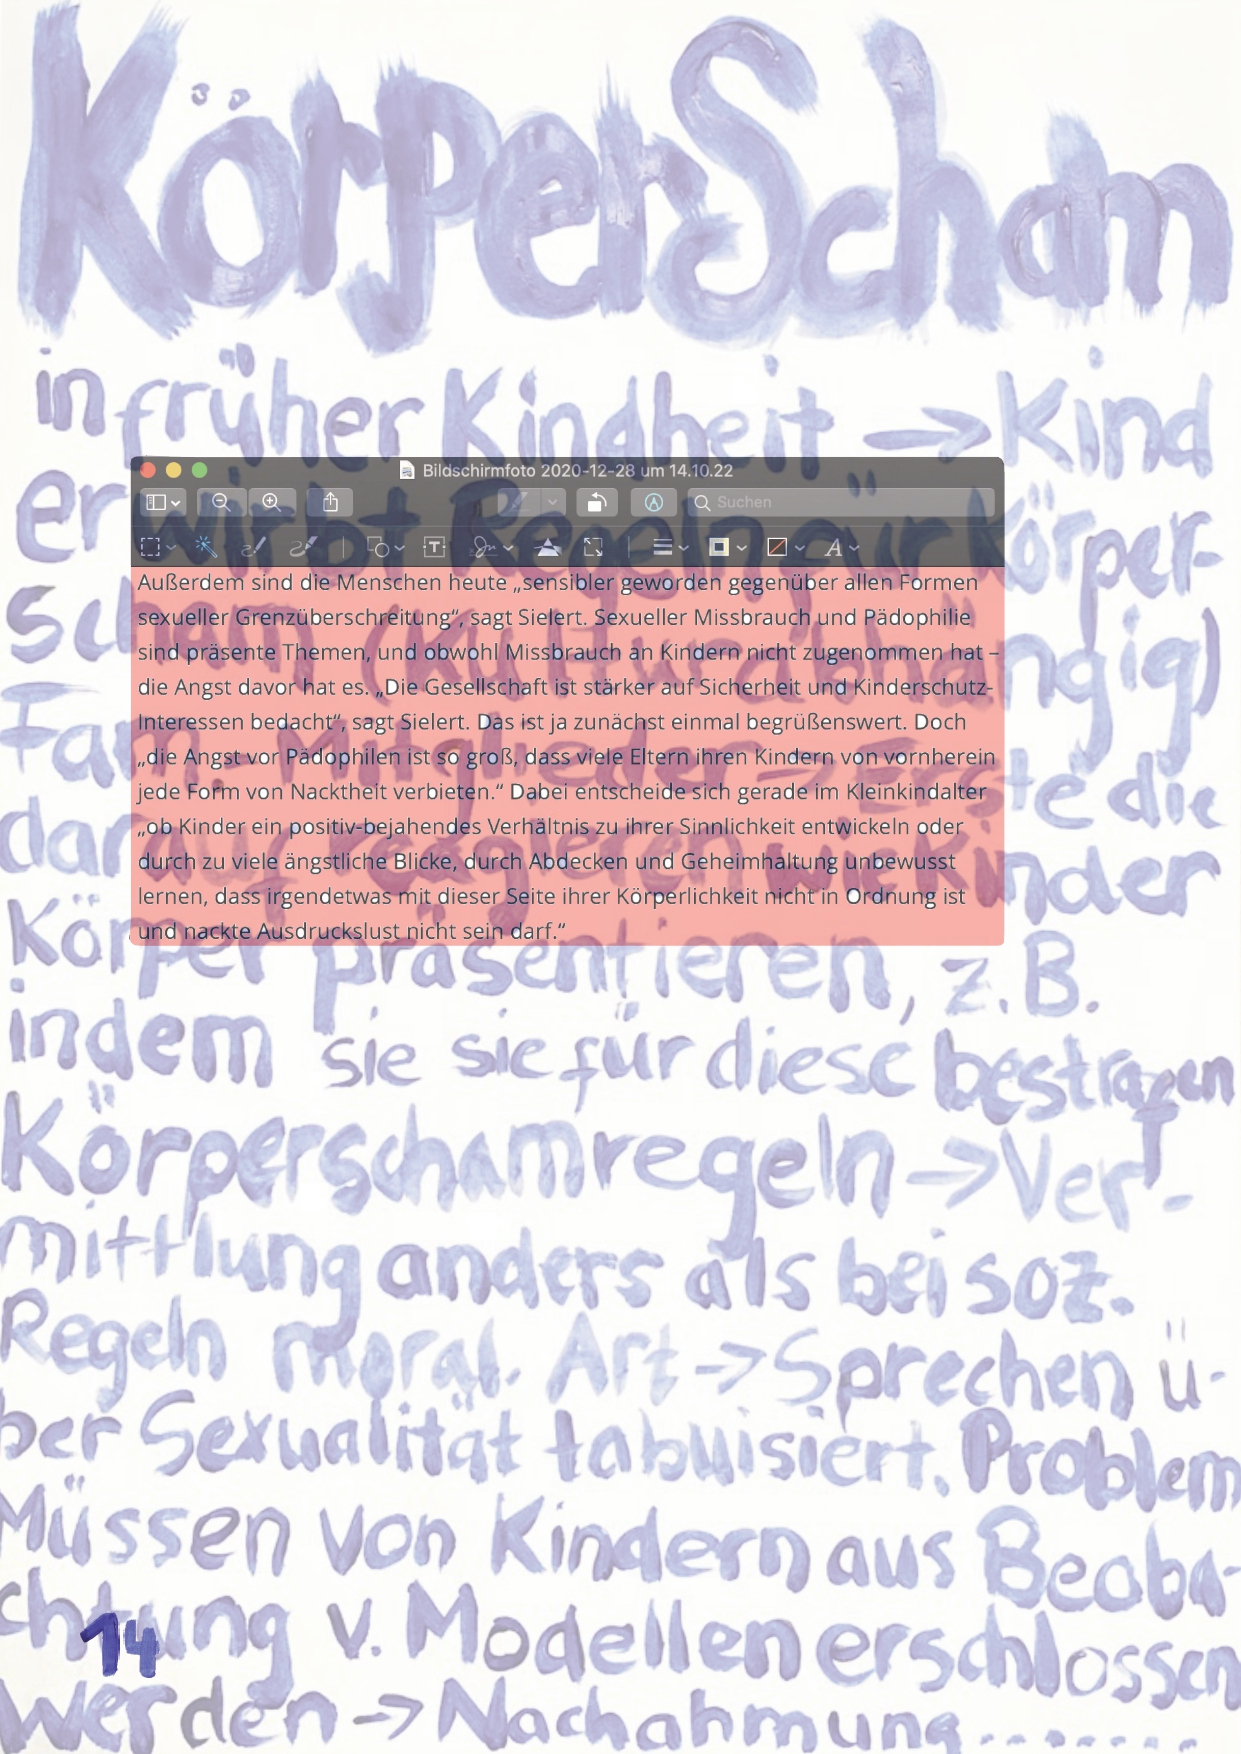 KörperScham
in früher Kindheit → Kind
erwirbt Regeln für Körper-
scham (Kulturabhängig)
Bildschirmfoto 2020-12-28 um 14.10.22
Suchen
Außerdem sind die Menschen heute „sensibler geworden gegenüber allen Formen
sexueller Grenzüberschreitung“, sagt Sielert. Sexueller Missbrauch und Pädophilie
sind präsente Themen, und obwohl Missbrauch an Kindern nicht zugenommen hat –
die Angst davor hat es. „Die Gesellschaft ist stärker auf Sicherheit und Kinderschutz-
Interessen bedacht“, sagt Sielert. Das ist ja zunächst einmal begrüßenswert. Doch
„die Angst vor Pädophilen ist so groß, dass viele Eltern ihren Kindern von vornherein
jede Form von Nacktheit verbieten.“ Dabei entscheide sich gerade im Kleinkindalter
„ob Kinder ein positiv-bejahendes Verhältnis zu ihrer Sinnlichkeit entwickeln oder
durch zu viele ängstliche Blicke, durch Abdecken und Geheimhaltung unbewusst
lernen, dass irgendetwas mit dieser Seite ihrer Körperlichkeit nicht in Ordnung ist
und nackte Ausdruckslust nicht sein darf.“
Fam.-Mitglieder → Erste die
darauf reagieren wie Kinder
Körper präsentieren, z.B.
indem sie sie für diese bestrafen
Körperschamregeln → Ver-
mittlung anders als bei soz.
Regeln moral. Art → Sprechen ü-
ber Sexualität tabuisiert. Problem
Müssen von Kindern aus Beoba-
chtung v. Modellen erschlossen
14
werden → Nachahmung........